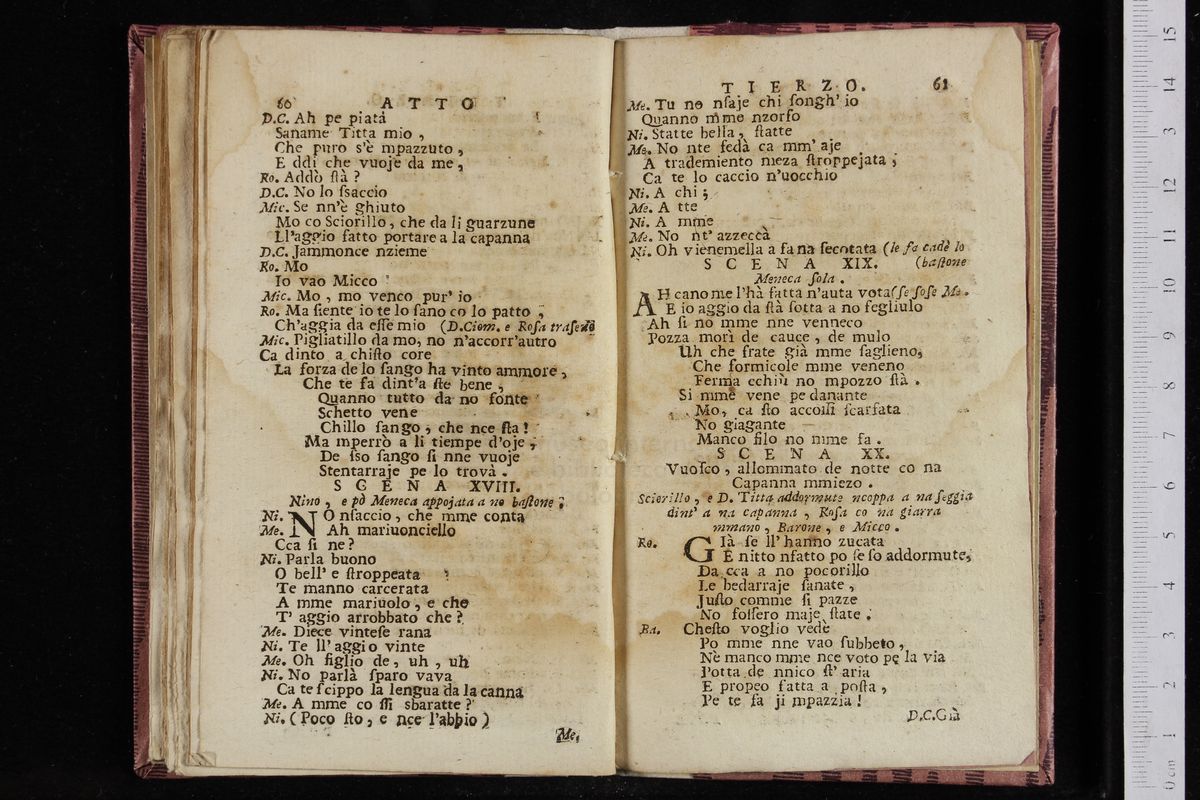 60 ATTO
D.C. Ah pe piatà
Saname Titta mio ,
Che puro s'è mpazzuto ,
E ddi che vuoje da me ,
Ro. Addò ſtà ?
D.C. No lo ſsaccio
Mic. Se nn'è ghiuto
Mo co Sciorillo , che da li guarzune
Ll'aggio fatto portare a la capanna
D.C. Jammonce nzieme
Ro. Mo
Io vao Micco
Mic. Mo , mo venco pur' io
Ro. Ma ſiente io te lo ſano co lo patto ;
Ch'aggia da eſſe mio (D.Ciom. e Roſa traſeno
Mic. Pigliatillo da mo, no n'accorr'autro
Ca dinto a chiſto core
La forza de lo ſango ha vinto ammore ,
Che te fa dint'a ſte bene ,
Quanno tutto da no fonte
Schetto vene
Chillo ſango , che nce ſta !
Ma mperrò a li tiempe d'oje ,
De ſso ſango ſi nne vuoje
Stentarraje pe lo trovà .
SCENA XVIII.
Nino , e pò Meneca appojata a no baſtone ;
Ni. NO nſaccio , che mme conta
Me. Ah mariuonciello
Cca ſi ne ?
Ni. Parla buono
O bell' e ſtroppeata
Te manno carcerata
A mme mariuolo , e che
T' aggio arrobbato che ?
Me. Diece vinteſe rana
Ni. Te ll' aggio vinte
Me. Oh figlio de , uh , uh
Ni. No parlà ſparo vava
Ca te ſcippo la lengua da la canna
Me. A mme co ſſi sbaratte ?
Ni. ( Poco ſto , e nce l'abbio )
Me.
TIERZO. 61
Me. Tu no nſaje chi ſongh' io
Quanno mme nzorfo
Ni. Statte bella , ſtatte
Me. No nte fedà ca mm' aje
A trademiento meza ſtroppejata ;
Ca te lo caccio n'uocchio
Ni. A chi ;
Me. A tte
Ni. A mme
Me. No nt' azzeccà
Ni. Oh vienemella a fa na ſecotata (le fa cadè lo
SCENA XIX. (baſtone
Meneca ſola .
AH cano me l'hà fatta n'auta vota (ſe ſoſe Me.
E io aggio da ſtà ſotta a no fegliulo
Ah ſi no mme nne venneco
Pozza morì de cauce , de mulo
Uh che frate già mme ſaglieno,
Che formicole mme veneno
Ferma cchiù no mpozzo ſtà .
Si mme vene pe danante
Mo, ca ſto accoſſi ſcarfata
No giagante
Manco filo no mme fa .
SCENA XX.
Vuoſco , allommato de notte co na
Capanna mmiezo .
Sciorillo , e D. Titta addormute ncoppa a na ſeggia
dint' a na capanna , Roſa co na giarra
mmano , Barone , e Micco .
Ro. GIà ſe ll' hanno zucata
E nitto nfatto po ſe ſo addormute,
Da cca a no pocorillo
Le bedarraje ſanate ,
Juſto comme ſi pazze
No foſſero maje ſtate .
Ba. Cheſto voglio vedè
Po mme nne vao ſubbeto ,
Nè manco mme nce voto pe la via
Potta de nnico ſt' aria
E propeo fatta a poſta ,
Pe te fa ji mpazzia !
D.C.Già